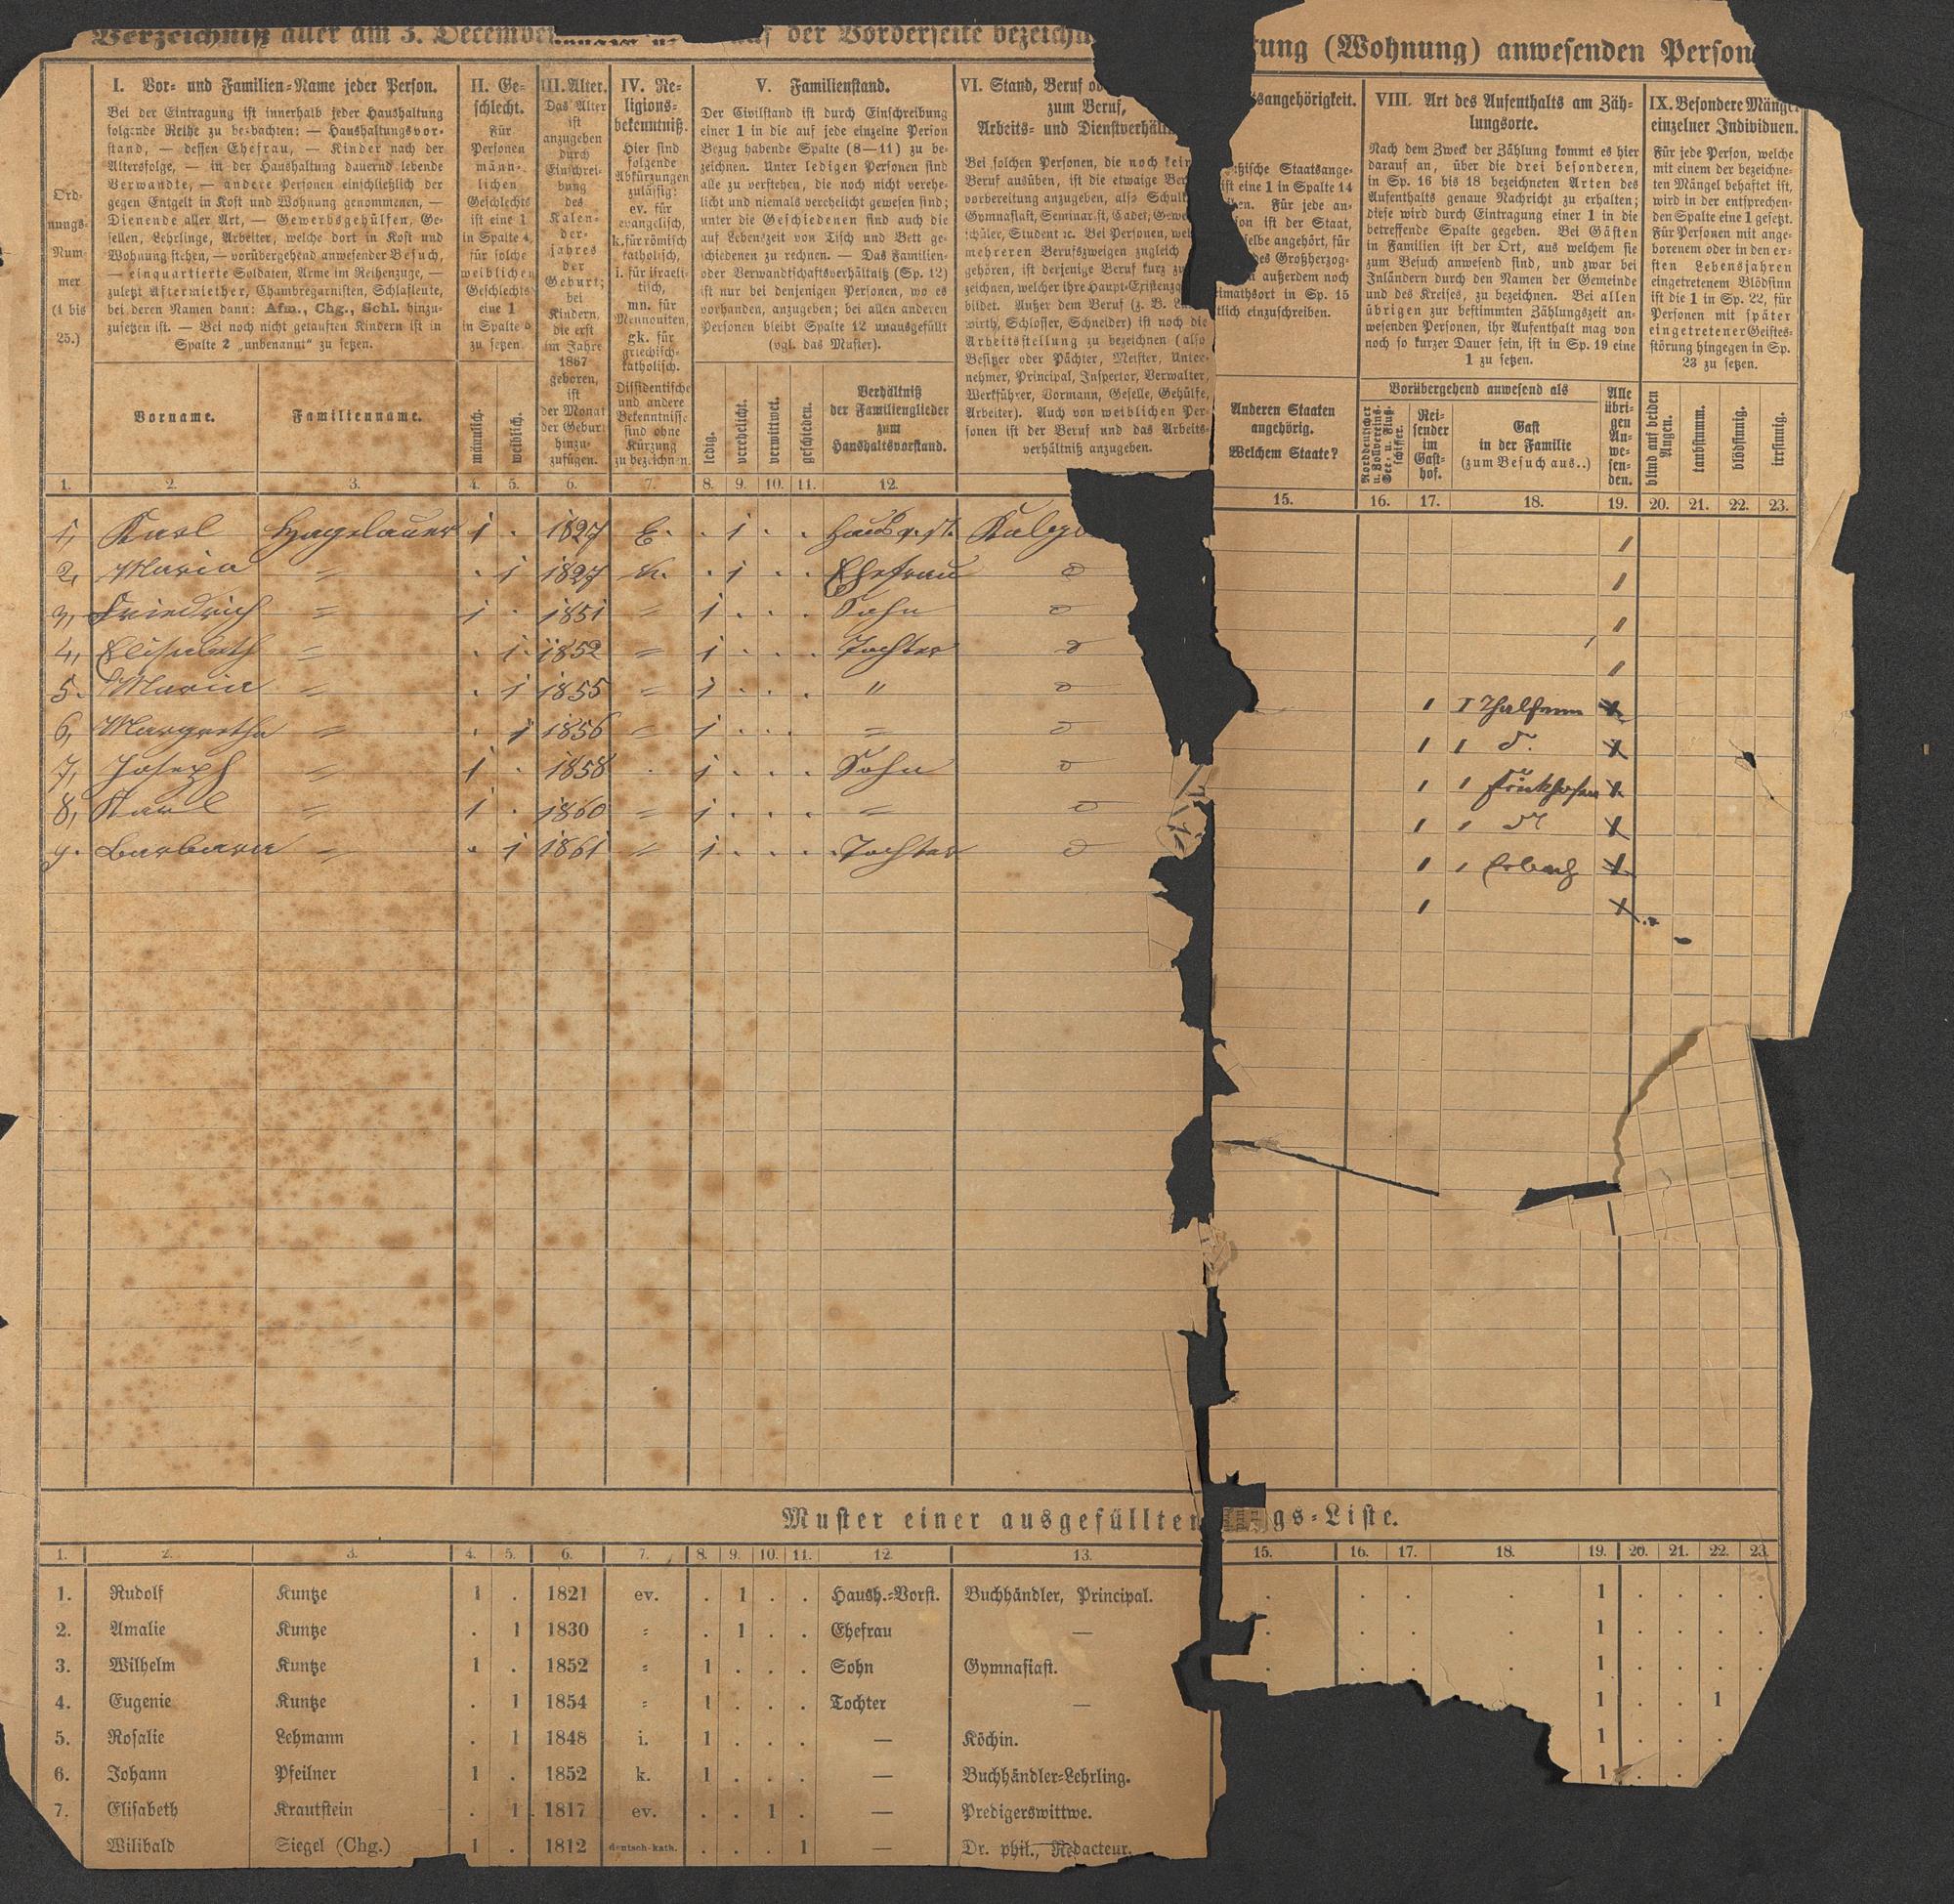 Verzeichniß aller am 3. December auf der Vorderseite bezeichn
rung (Wohnung) anwesenden Person
Ord-
nungs-
Num
mer
(1 bis
25.)
I. Vor- und Familien-Name jeder Person.
Bei der Eintragung ist innerhalb jeder Haushaltung
folgende Reihe zu beobachten: — Haushaltungsvor-
stand, — dessen Ehefrau, — Kinder nach der
Altersfolge, — in der Haushaltung dauernd lebende
Verwandte, — andere Personen einschließlich der
gegen Entgelt in Kost und Wohnung genommenen, —
Dienende aller Art, — Gewerbsgehülfen, Ge-
sellen, Lehrlinge, Arbeiter, welche dort in Kost und
Wohnung stehen, — vorübergehend anwesender Besuch,
— einquartierte Soldaten, Arme im Reihenzuge, —
zuletzt Aftermiether, Chambregarnisten, Schlafleute,
bei deren Namen dann: Afm., Chg., Schl. hinzu-
zusetzen ist. — Bei noch nicht getauften Kindern ist in
Spalte 2 „unbenannt“ zu setzen.
Vorname.
Familienname.
II. Ge-
schlecht.
Für
Personen
männ-
lichen
Geschlechts
ist eine 1
in Spalte 4,
für solche
weiblichen
Geschlechts
eine 1
in Spalte 5
zu setzen
männlich.
weiblich.
III. Alter.
Das Alter
ist
anzugeben
durch
Einschrei-
bung
des
Kalen-
der-
jahres
der
Geburt;
bei
Kindern,
die erst
im Jahre
1867
geboren,
ist
der Monat
der Geburt
hinzu-
zufügen.
IV. Re-
ligions-
bekenntniß.
Hier sind
folgende
Abkürzungen
zulässig:
ev. für
evangelisch,
k. für römisch
katholisch,
i. für israeli-
tisch,
mn. für
Mennoniten,
gk. für
griechisch-
katholisch.
Dissidentische
und andere
Bekenntnisse
sind ohne
Kürzung
zu bezeichnen.
V. Familienstand.
Der Civilstand ist durch Einschreibung
einer 1 in die auf jede einzelne Person
Bezug habende Spalte (8—11) zu be-
zeichnen. Unter ledigen Personen sind
alle zu verstehen, die noch nicht verehe-
licht und niemals verehelicht gewesen sind;
unter die Geschiedenen sind auch die
auf Lebenszeit von Tisch und Bett ge-
schiedenen zu rechnen. — Das Familien-
oder Verwandtschaftsverhältniß (Sp. 12)
ist nur bei denjenigen Personen, wo es
vorhanden, anzugeben; bei allen anderen
Personen bleibt Spalte 12 unausgefüllt
(vgl. das Muster).
ledig.
verehelicht.
verwittwet.
geschieden.
Verhältniß
der Familienglieder
zum
Haushaltsvorstand.
VI. Stand, Beruf od
zum Beruf,
Arbeits- und Dienstverhältn
Bei solchen Personen, die noch kein
Beruf ausüben, ist die etwaige Ber
vorbereitung anzugeben, also Schul
Gymnasiast, Seminarist, Cadet, Gewe
schüler, Student ꝛc. Bei Personen, wel
mehreren Berufszweigen zugleich
gehören, ist derjenige Beruf kurz zu
zeichnen, welcher ihre Haupt-Existenzq
bildet. Außer dem Beruf (z. B. La
wirth, Schlosser, Schneider) ist noch die
Arbeitsstellung zu bezeichnen (also
Besitzer oder Pächter, Meister, Unter-
nehmer, Principal, Inspector, Verwalter,
Werkführer, Vormann, Geselle, Gehülfe,
Arbeiter). Auch von weiblichen Per-
sonen ist der Beruf und das Arbeits-
verhältniß anzugeben.
tsangehörigkeit.
ßische Staatsange-
ist eine 1 in Spalte 14
en. Für jede an-
on ist der Staat,
selbe angehört, für
des Großherzog-
außerdem noch
imathsort in Sp. 15
tlich einzuschreiben.
Anderen Staaten
angehörig.
Welchem Staate?
VIII. Art des Aufenthalts am Zäh-
lungsorte.
Nach dem Zweck der Zählung kommt es hier
darauf an, über die drei besonderen,
in Sp. 16 bis 18 bezeichneten Arten des
Aufenthalts genaue Nachricht zu erhalten;
diese wird durch Eintragung einer 1 in die
betreffende Spalte gegeben. Bei Gästen
in Familien ist der Ort, aus welchem sie
zum Besuch anwesend sind, und zwar bei
Inländern durch den Namen der Gemeinde
und des Kreises, zu bezeichnen. Bei allen
übrigen zur bestimmten Zählungszeit an-
wesenden Personen, ihr Aufenthalt mag von
noch so kurzer Dauer sein, ist in Sp. 19 eine
1 zu setzen.
Vorübergehend anwesend als
Norddeutscher
u. Zollvereins-
See- u. Fluß-
schiffer.
Rei-
sender
im
Gast-
hof.
Gast
in der Familie
(zum Besuch aus..)
Alle
übri-
gen
An-
we-
sen-
den.
IX. Besondere Mängel
einzelner Individuen.
Für jede Person, welche
mit einem der bezeichne-
ten Mängel behaftet ist,
wird in der entsprechen-
den Spalte eine 1 gesetzt.
Für Personen mit ange-
borenem oder in den er-
sten Lebensjahren
eingetretenem Blödsinn
ist die 1 in Sp. 22, für
Personen mit später
eingetretener Geistes-
störung hingegen in Sp.
23 zu setzen.
blind auf beiden
Augen.
taubstumm.
blödsinnig.
irrsinnig.
1. 2. 3. 4. 5. 6. 7. 8. 9. 10. 11. 12. 15. 16. 17. 18. 19. 20. 21. 22. 23.
1, Karl Hagelauer 1 . 1827 E. . 1 . . 1
2, Maria = . 1 1827 K. . 1 . . Ehefrau 0 1
3, Friedrich = 1 . 1851 = 1 . . . Sohn 0 1
4, Elisabeth = . 1 1852 = 1 . . . Tochter 0 1
5. Maria = . 1 1855 = 1 . . . " 0 1 1
6, Margretha = . 1 1856 = 1 . . . = 0 1 1
7, Joseph = 1 . 1858 . 1 . . . Sohn 0 1 1
8, Karl = 1 . 1860 = 1 . . . = 0 1 1
9. Barbara = . 1 1861 = 1 . . . Tochter 0 1 1 Erbach
Muster einer ausgefüllten gs-Liste.
1. 2. 3. 4. 5. 6. 7. 8. 9. 10. 11. 12. 13. 15. 16. 17. 18. 19. 20. 21. 22. 23.
1. Rudolf Kuntze 1 . 1821 ev. . 1 . . Haush.-Vorst. Buchhändler, Principal. . . . . 1 . . . .
2. Amalie Kuntze . 1 1830 = . 1 . . Ehefrau — . . . . 1 . . . .
3. Wilhelm Kuntze 1 . 1852 = 1 . . . Sohn Gymnasiast. . . . . 1 . . . .
4. Eugenie Kuntze . 1 1854 = 1 . . . Tochter — 1 . . 1
5. Rosalie Lehmann . 1 1848 i. 1 . . . — Köchin. 1 . . .
6. Johann Pfeilner 1 . 1852 k. 1 . . . — Buchhändler-Lehrling. 1 . .
7. Elisabeth Krautstein . 1 1817 ev. . . 1 . — Predigerswittwe.
Wilibald Siegel (Chg.) 1 . 1812 deutsch-kath. . . . 1 — Dr. phil., Redacteur.